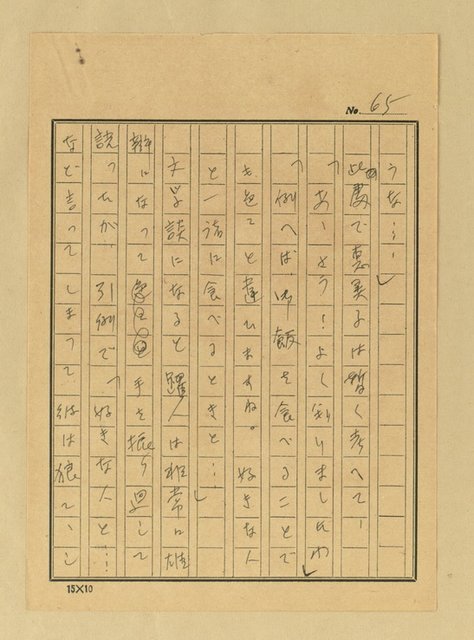 No. 65
うな…」
此處で恵美子は暫く考へて、
「あゝさう！よく判りましたわ」
「例へば、御飯を食べることで
も他てと違ひますね。好きな人
と一緒に食べるときと…」
文学談になると躍人は非常に雄
辯になって手を振り廻して
説つたが、引例で「好きな人と…
など言ってしまって彼は狼てゝし
15×10